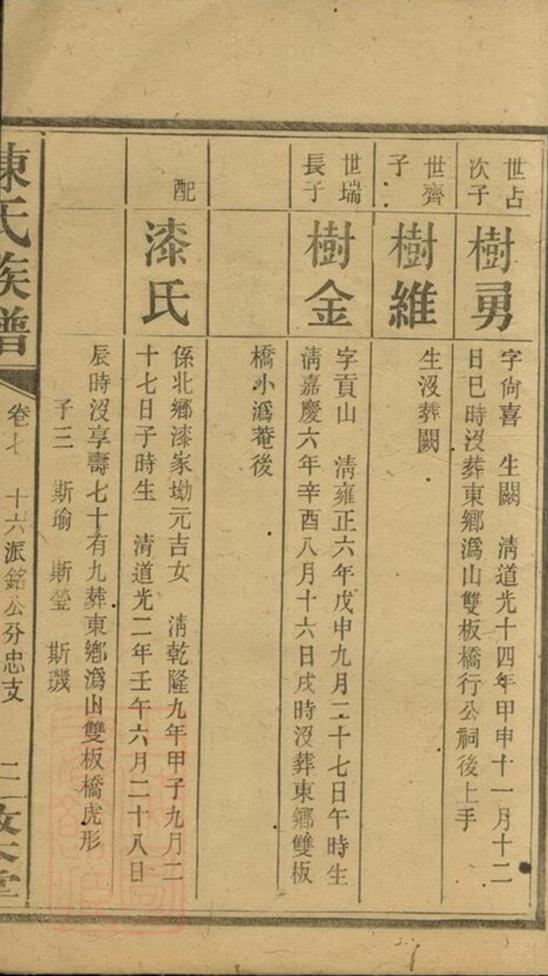 世占
次子
樹勇
字尙喜　生闕　清道光十四年甲申十一月十二
日巳時沒葬東鄉溈山雙板橋行公祠後上手
世齊
子
樹維
生沒葬闕
世瑞
長子
樹金
字貢山　清雍正六年戊申九月二十七日午時生
清嘉慶六年辛酉八月十六日戌時沒葬東鄉雙板
橋小溈菴後
配
漆氏
係北鄉漆家坳元吉女　清乾隆九年甲子九月二
十七日子時生　清道光二年壬午六月二十八日
辰時沒享壽七十有九葬東鄉溈山雙板橋虎形
子三　斯瑜　斯瑩　斯璣
陳氏族譜
卷七　十六派銘公分忠支